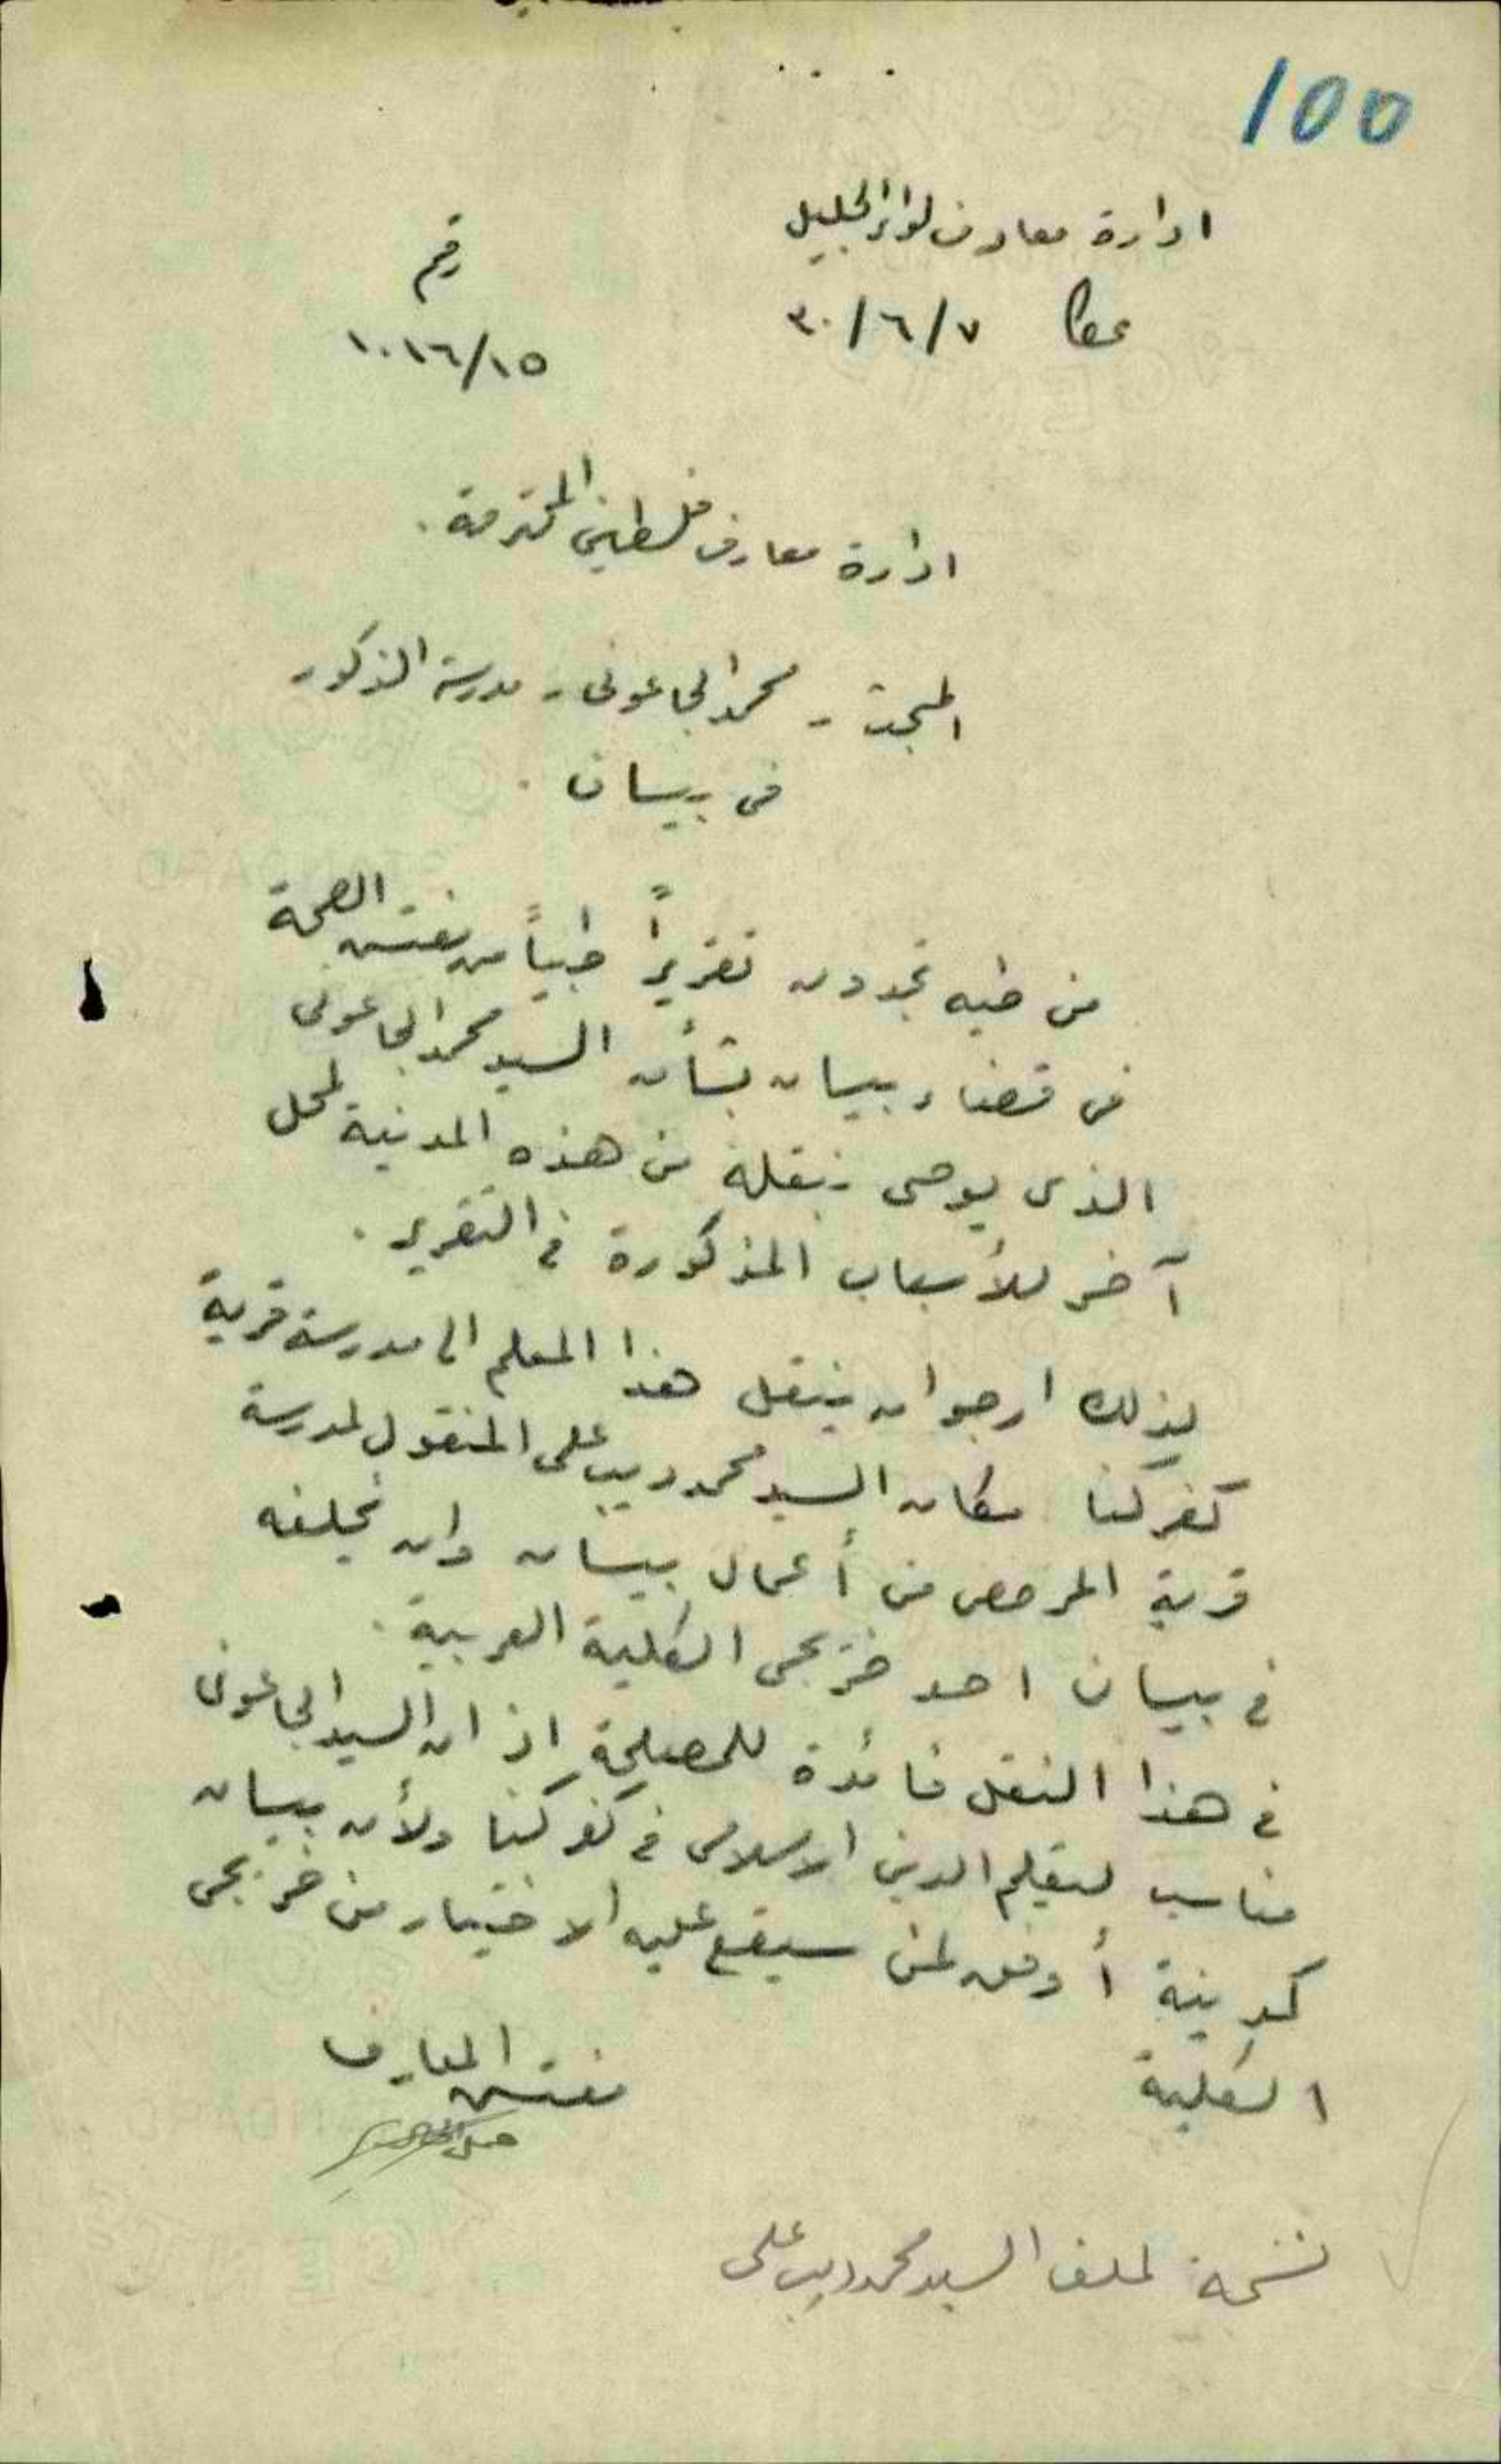 100
ادارة معارف لواء الجليل
رقم
عكا ٧/٦/٣٠
١٠١٦/١٥
ادارة معارف فلسطين المحترمة.
المبحث - محمد الجاعوني - مدرسة الذكور
في بيسان.
من طيه تجدون تقريراً طبياً من مفتش الصحة
في قضاء بيسان بشأن السيد محمد الجاعوني
الذي يوصي بنقله من هذه المدينة لمحل
آخر للأسباب المذكورة في التقرير.
لذلك ارجو ان ينقل هذا المعلم الى مدرسة قرية
كفركنا مكان السيد محمد ديب علي المنقول لمدرسة
قرية المرصص من أعمال بيسان وان يخلفه
في بيسان احد خريجي الكلية العربية.
في هذا النقل فائدة للمصلحة اذ ان السيد الجاعوني
مناسب لتعليم الدين الاسلامي في كفركنا ولأن بيسان
كمدينة أوفق لمن سيقع عليه الاختيار من خريجي
الكلية
مفتش المعارف
نسخة لملف السيد محمد ديب علي